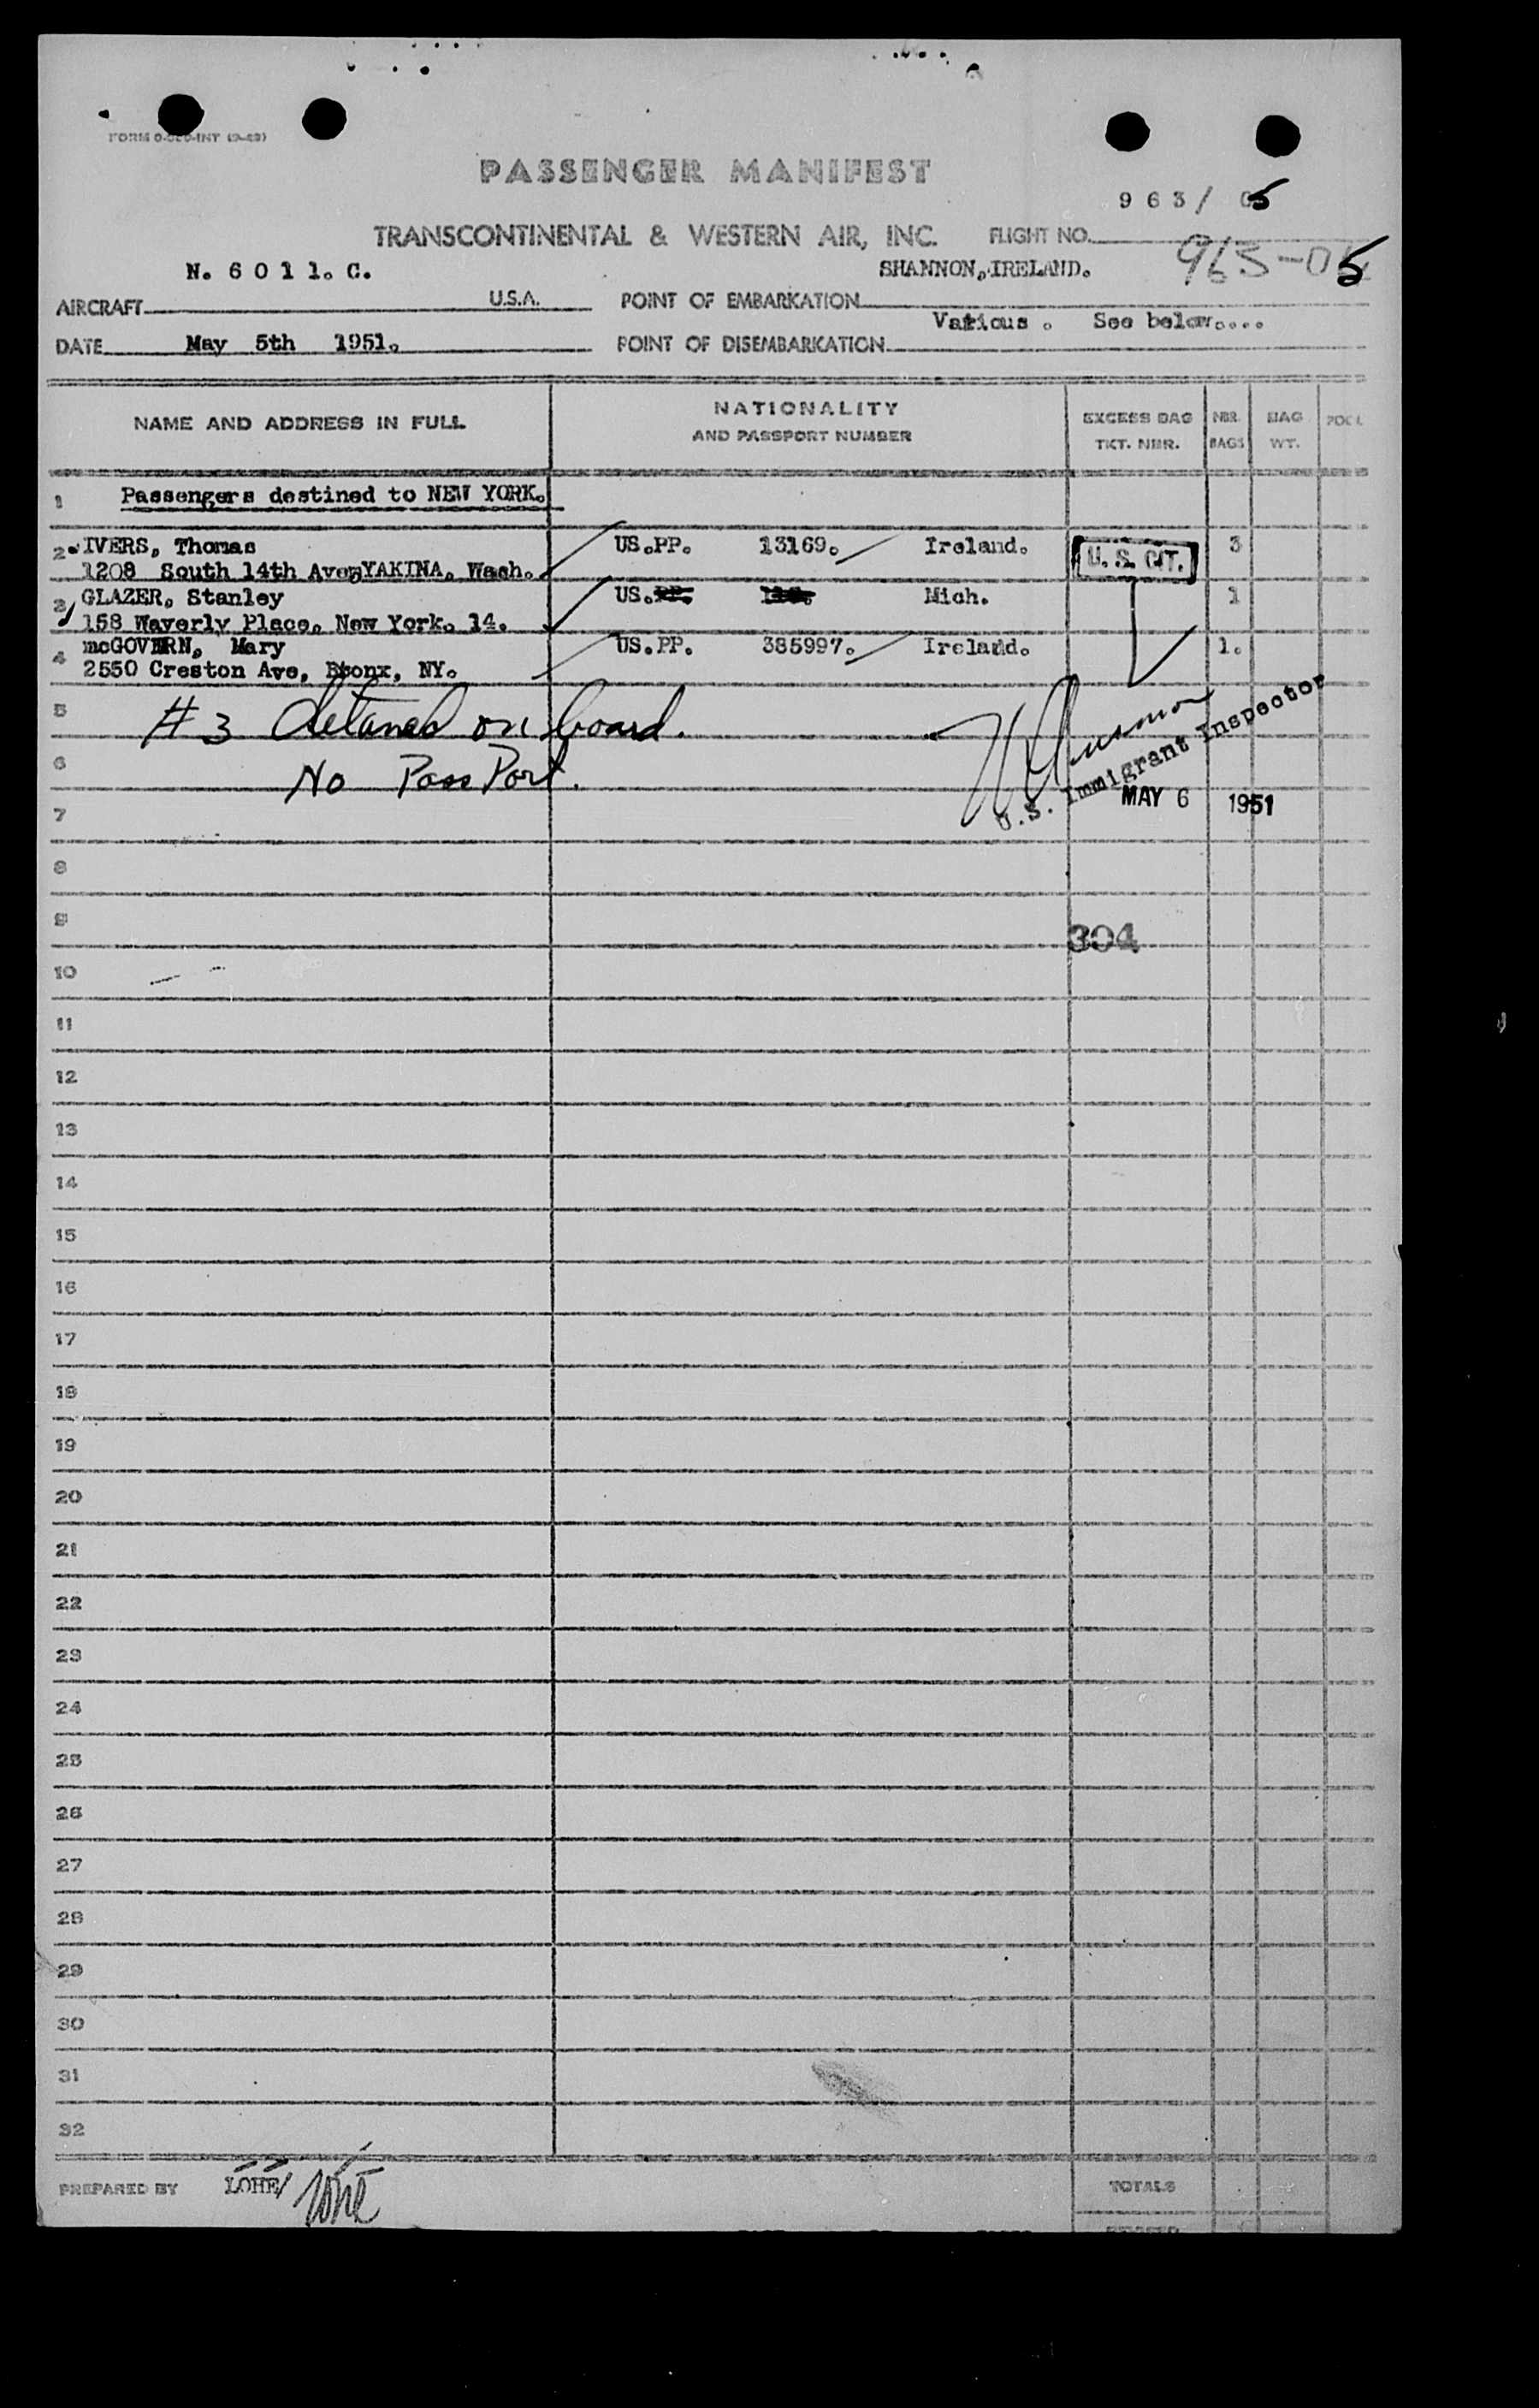 PASSENGER MANIFEST
963/ 05
TRANSCONTINENTAL & WESTERN AIR, INC. FLIGHT NO.
963-05
N. 6 0 1 1. C. SHANNON, IRELAND.
AIRCRAFT U.S.A. POINT OF EMBARKATION
Various . See below....
DATE May 5th 1951. POINT OF DISEMBARKATION
NAME AND ADDRESS IN FULL NATIONALITY AND PASSPORT NUMBER EXCESS BAG TKT. NBR. NBR. BAGS BAG WT.
1 Passengers destined to NEW YORK.
2 IVERS, Thomas US.PP. 13169. Ireland. U. S. CIT. 3
1208 South 14th Ave, YAKINA. Wash.
3 GLAZER, Stanley US. Mich. 1
158 Waverly Place, New York. 14.
4 mcGOVERN, Mary US.PP. 385997. Ireland. 1.
2550 Creston Ave, Bronx, NY.
5 #3 detained on board.
6 No PassPort.
U.S. Immigrant Inspector
7 MAY 6 1951
8
9 304
10
11
12
13
14
15
16
17
18
19
20
21
22
23
24
25
26
27
28
29
30
31
32
PREPARED BY LOHE/ TOTALS